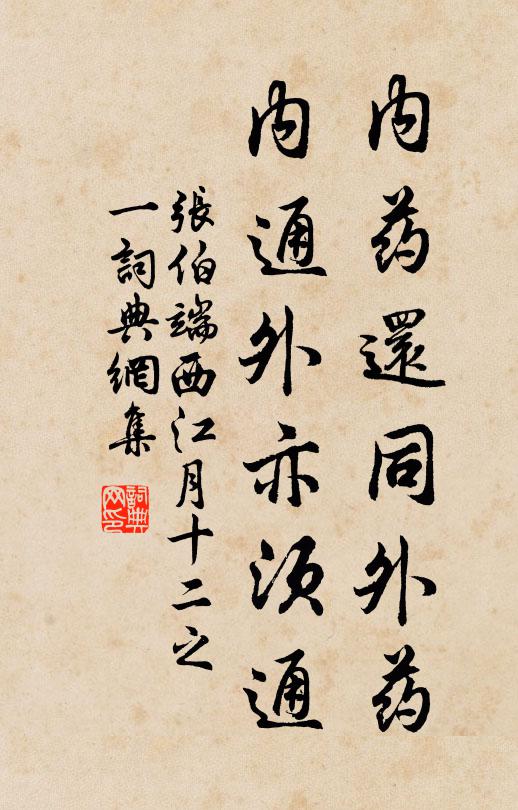 内药還同外药
内通外亦须通
張伯端西江月十二之
一詞典網集
詞典网印